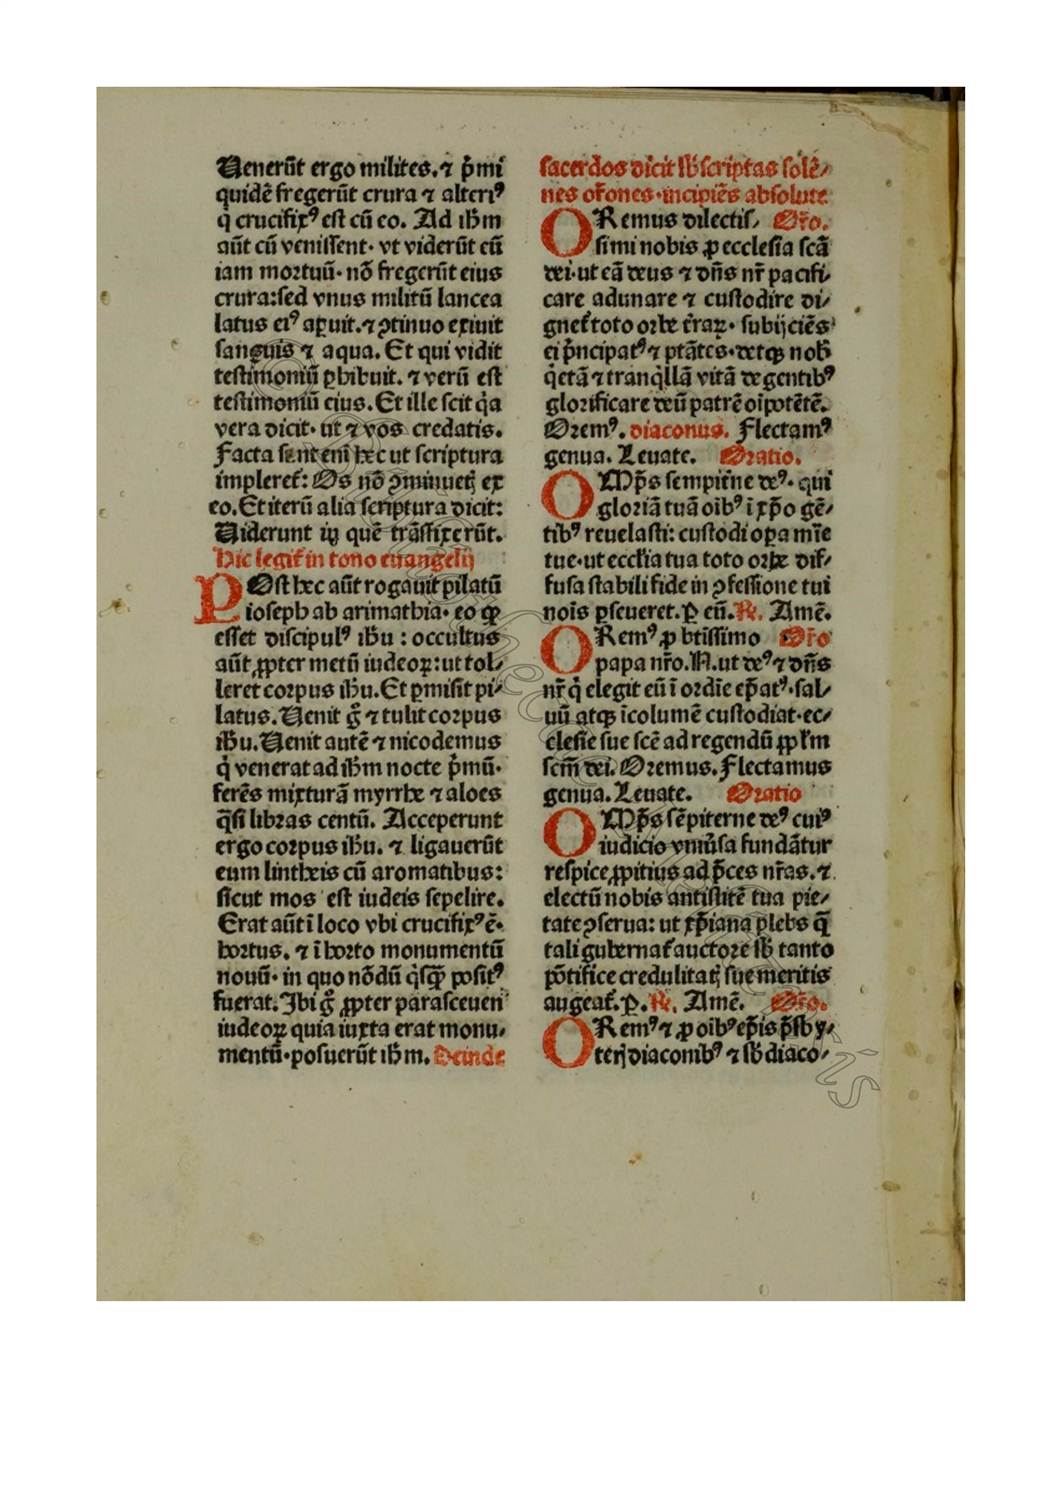 Uenerūt ergo milites. ⁊ p̄mi
quidē fregerūt crura ⁊ alteriꝰ
q̇ crucifixꝰ est cū eo. Ad ih̄m
aūt cū venissent· vt viderūt eū
iam mortuū· nō fregerūt eius
crura: sed vnus militū lancea
latus eiꝰ aꝑuit. ⁊ ꝯtinuo exiuit
sanguis ⁊ aqua. Et qui vidit
testimoniū ꝑhibuit. ⁊ verū est
testimoniū eius. Et ille scit q̇a
vera dicit· ut ⁊ vos credatis.
Facta sunt eni᷑ hec ut scriptura
impleret᷑: Os nō ꝯminuetꝭ ex
eo. Et iterū alia scriptura dicit:
Uiderunt iꝫ quē trāsfixerūt.
Hic legit᷑ in tono euangelij
POst hec aūt rogauit pilatū
ioseph ab arimathia· eo ꝙ
esset discipulꝰ ih̄u : occultus
aūt ꝓpter metū iudeoꝝ: ut tol⸗
leret corpus ih̄u. Et ꝑmisit pi⸗
latus. Uenit g̊ ⁊ tulit corpus
ih̄u. Uenit autē ⁊ nicodemus
q̇ venerat ad ih̄m nocte p̄mū·
ferēs mixturā myrrhe ⁊ aloes
q̄si libras centū. Acceperunt
ergo corpus ih̄u. ⁊ ligauerūt
eum lintheis cū aromatibus:
sicut mos est iudeis sepelire.
Erat aūt ī loco vbi crucifixꝰ ē·
hortus. ⁊ ī horto monumentū
nouū· in quo nōdū q̇sq̄ꝫ positꝰ
fuerat. Ibi g̊ ꝓpter parasceuen
iudeoꝝ quia iuxta erat monu⸗
mentū· posuerūt ih̄m. Deinde
sacerdos dicit sb̄scriptas solē⸗
nes or̄ones· incipiēs absolute
ORemus dilectis⸗ Or̄o.
simi nobis ꝓ ecclesia scā
dei· ut eā deus ⁊ dn̄s nr̄ pacifi⸗
care adunare ⁊ custodire di⸗
gnet᷑ toto orbe t̄raꝝ· subijciēs
ei p̄ncipatꝰ ⁊ ptātes· detqꝫ nob̄
q̇etā ⁊ tranq̇llā vitā degentibꝰ
glorificare deū patrē oīpotētē.
Oremꝰ. diaconus. Flectamꝰ
genua. Leuate. Oratio.
OMp̄s sempit̄ne deꝰ· qui
gloriā tuā oībꝰ ī xp̄o gē⸗
tibꝰ reuelasti: custodi oꝑa mīe
tue· ut eccl̄ia tua toto orbe dif⸗
fusa stabili fide in ꝯfessione tui
noīs ꝑseueret. ꝑ eū. ℟. Amē.
ORemꝰ ꝓ btīssimo Or̄o
papa nr̄o. N. ut deꝰ ⁊ dn̄s
nr̄ q̇ elegit eū ī ordīe ep̄atꝰ· sal⸗
uū atqꝫ īcolumē custodiat· ec⸗
clesie sue scē ad regendū ppl̄m
scm̄ dei. Oremus. Flectamus
genua. Leuate. Oratio
OMp̄s sēpiterne deꝰ cuiꝰ
iudicio vniūsa fundātur
respice ꝓpitius ad p̄ces nr̄as. ⁊
electū nobis antistitē tua pie⸗
tate ꝯserua: ut xp̄iana plebs q̄
tali gubernat᷑ auctore sb̄ tanto
pōtifice credulitatꝭ sue meritis
augeat᷑. ꝑ. ℟. Amē. Or̄o.
ORemꝰ ⁊ ꝓ oībꝰ ep̄is p̄sby⸗
terꝭ diaconibꝰ ⁊ sb̄diaco⸗